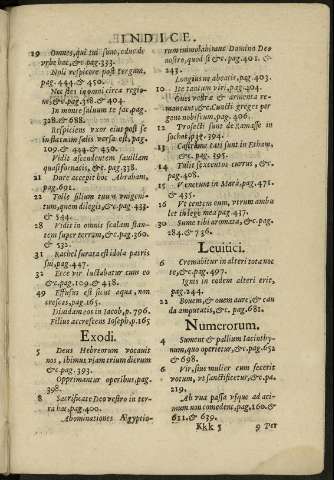 INDICE.
19 Omnes, qui tui sunt, educ de
vrbe hac, &c. pag. 333.
Noli respicere post tergum,
pag. 444. & 450.
Nec stes in omni circa regio-
ne, &c. pag. 318. & 404.
In monte saluum te fac, pag.
328. & 688.
Respiciens vxor eius post se
in statuam salis versa est, pag.
109. & 450. & 453.
Vidit ascendentem fauillam
quasi fornacis, &c. pag. 338.
21 Dure accepit hoc Abraham,
pag. 691.
22 Tolle filium tuum vnigeni-
tum, quem diligis, &c. pag. 433.
& 544.
28 Vidit in omnis scalam stan-
tem super terram, &c. pag. 360.
& 532.
31 Rachel furata est idola patris
sui, pag. 447.
32 Ecce vir luctabatur cum eo
&c. pag. 109. & 438.
49 Effusus est sicut aqua, non
crescas, pag. 165.
Diuidam eos in Iacob, p. 796.
Filius accrescens Ioseph, p. 165
Exodi.
5 Deus Hebræorum vocauit
nos, ibimus viam trium dierum
&c. pag. 393.
Opprimantur operibus, pag.
398.
8 Sacrificate Deo vestro in ter-
ra hac, pag. 400.
Abominationes Ægyptio-
rum immolabimus Domino Deo
nostro, quod si &c. pag. 401. &
243.
Longius ne abeatis, pag. 403.
10 Ite tantum viri, pag. 404.
Oues vestræ & armenta re-
maneant, &c. Cuncti greges per-
gent nobiscum, pag. 406.
12 Profecti sunt de Ramasse in
13 Castrametati sunt in Etham,
&c. pag. 395.
14 Tulit sexcentos currus, &c.
pag. 408.
15 Venerunt in Mara, pag. 475.
&
435.
16 Vt tentem eum, vtrum ambu
let in lege mea pag. 437.
30 Sume tibi aromata, &c. pag.
284. & 736.
Leuitici.
6 Cremabitur in altari tota noc
te, &c. pag. 407.
Ignis in eodem altari erit,
pag. 244.
22 Bouem, & ouem aure, & cau
da amputatis, &c. pag. 681.
Numerorum.
4 Sument & pallium Iacinthy-
num, quo operietur, &c. pag. 652
& 698.
6 Vir, siue mulier cum fecerit
votum, vt sanctificetur, &c. pa.
219.
Ab vua passa vsque ad aci-
num non comedent, pag. 160. &
611. & 639.
Kkk 5
9 Per